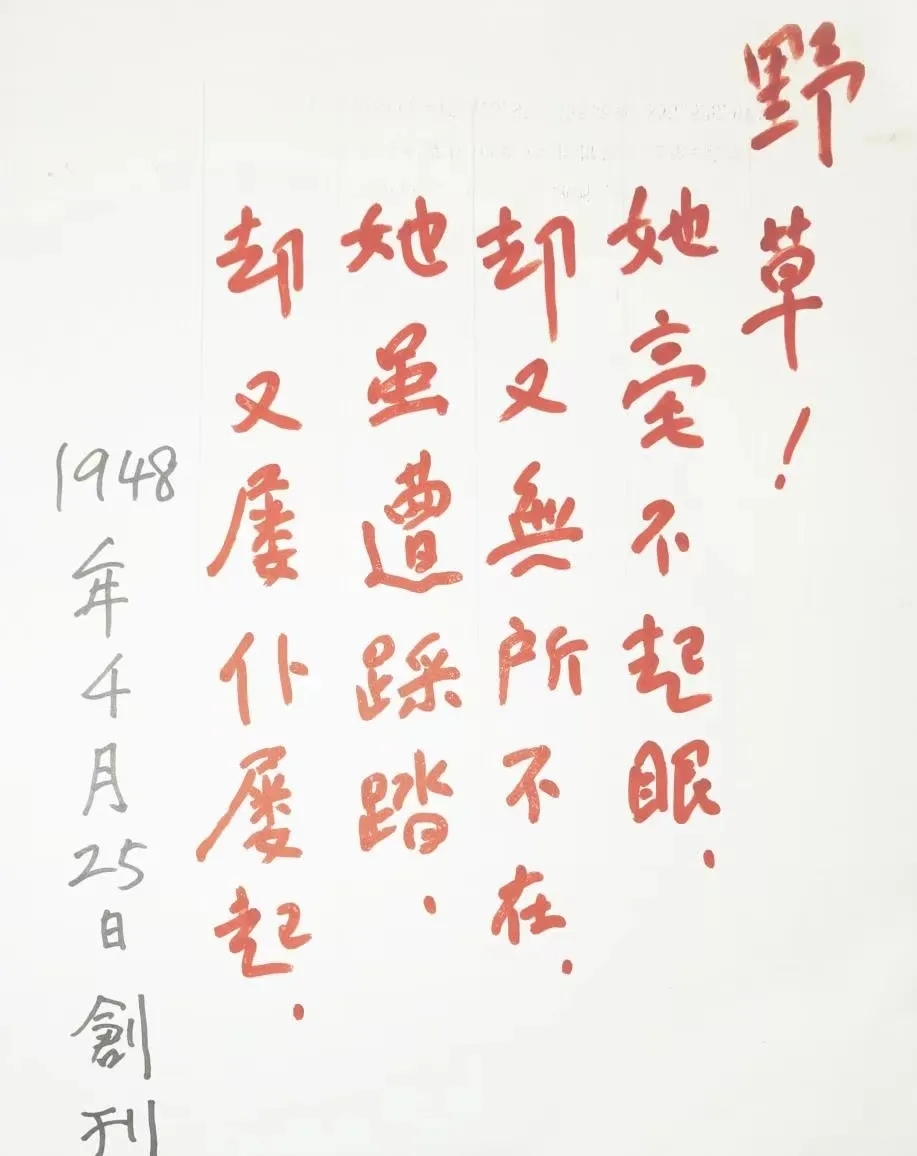 野草！
她毫不起眼.
却又無所不在.
她虽遭踩踏.
却又屡仆屡起.
1948年4月25日創刊